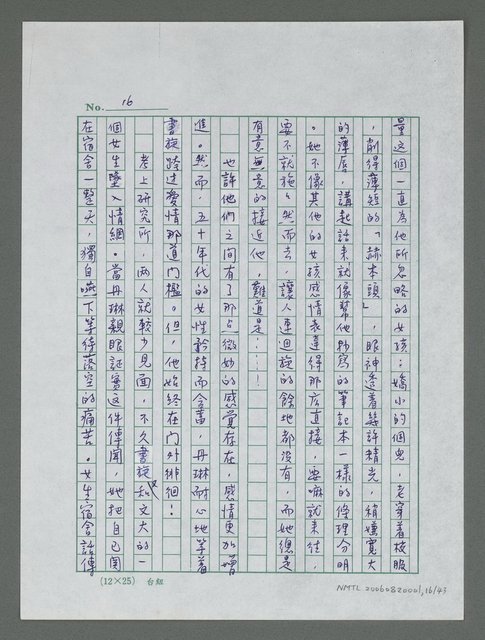 No. 16
量這個一直為他所忽略的女孩：嬌小的個兒，老穿着校服
，削得薄短的「赫本頭」，眼神透着幾許精光，稍嫌寬大
的薄唇，講起話來就像幫他抄寫的筆記本一樣的條理分明
。她不像其他的女孩感情表達得那麼直接，要嘛就來往，
要不就施施然而去，讓人連迴旋的餘地都沒有，而她總是
有意無意的接近他，難道是……！
也許他們之間有了那点微妙的感覺存在，感情更加增
進。然而，五十年代的女性矜持而含蓄，丹琳耐心地等着
書旋跨過愛情那道門檻。但，他始終在門外徘徊！
考上研究所，兩人就較少見面，不久書旋和文大的一
個女生墜入情網。當丹琳親眼証實這件傳聞，她把自己関
在宿舍一整天，獨自嚥下等待落空的痛苦。女生宿舍謠傳
(12×25) 台紐
NMTL 20060820001, 16/43